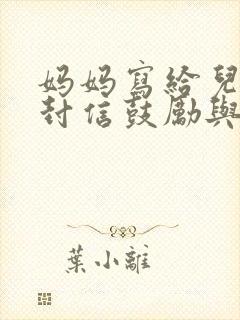 妈妈寫給兒
封信鼓勵與
葉小離